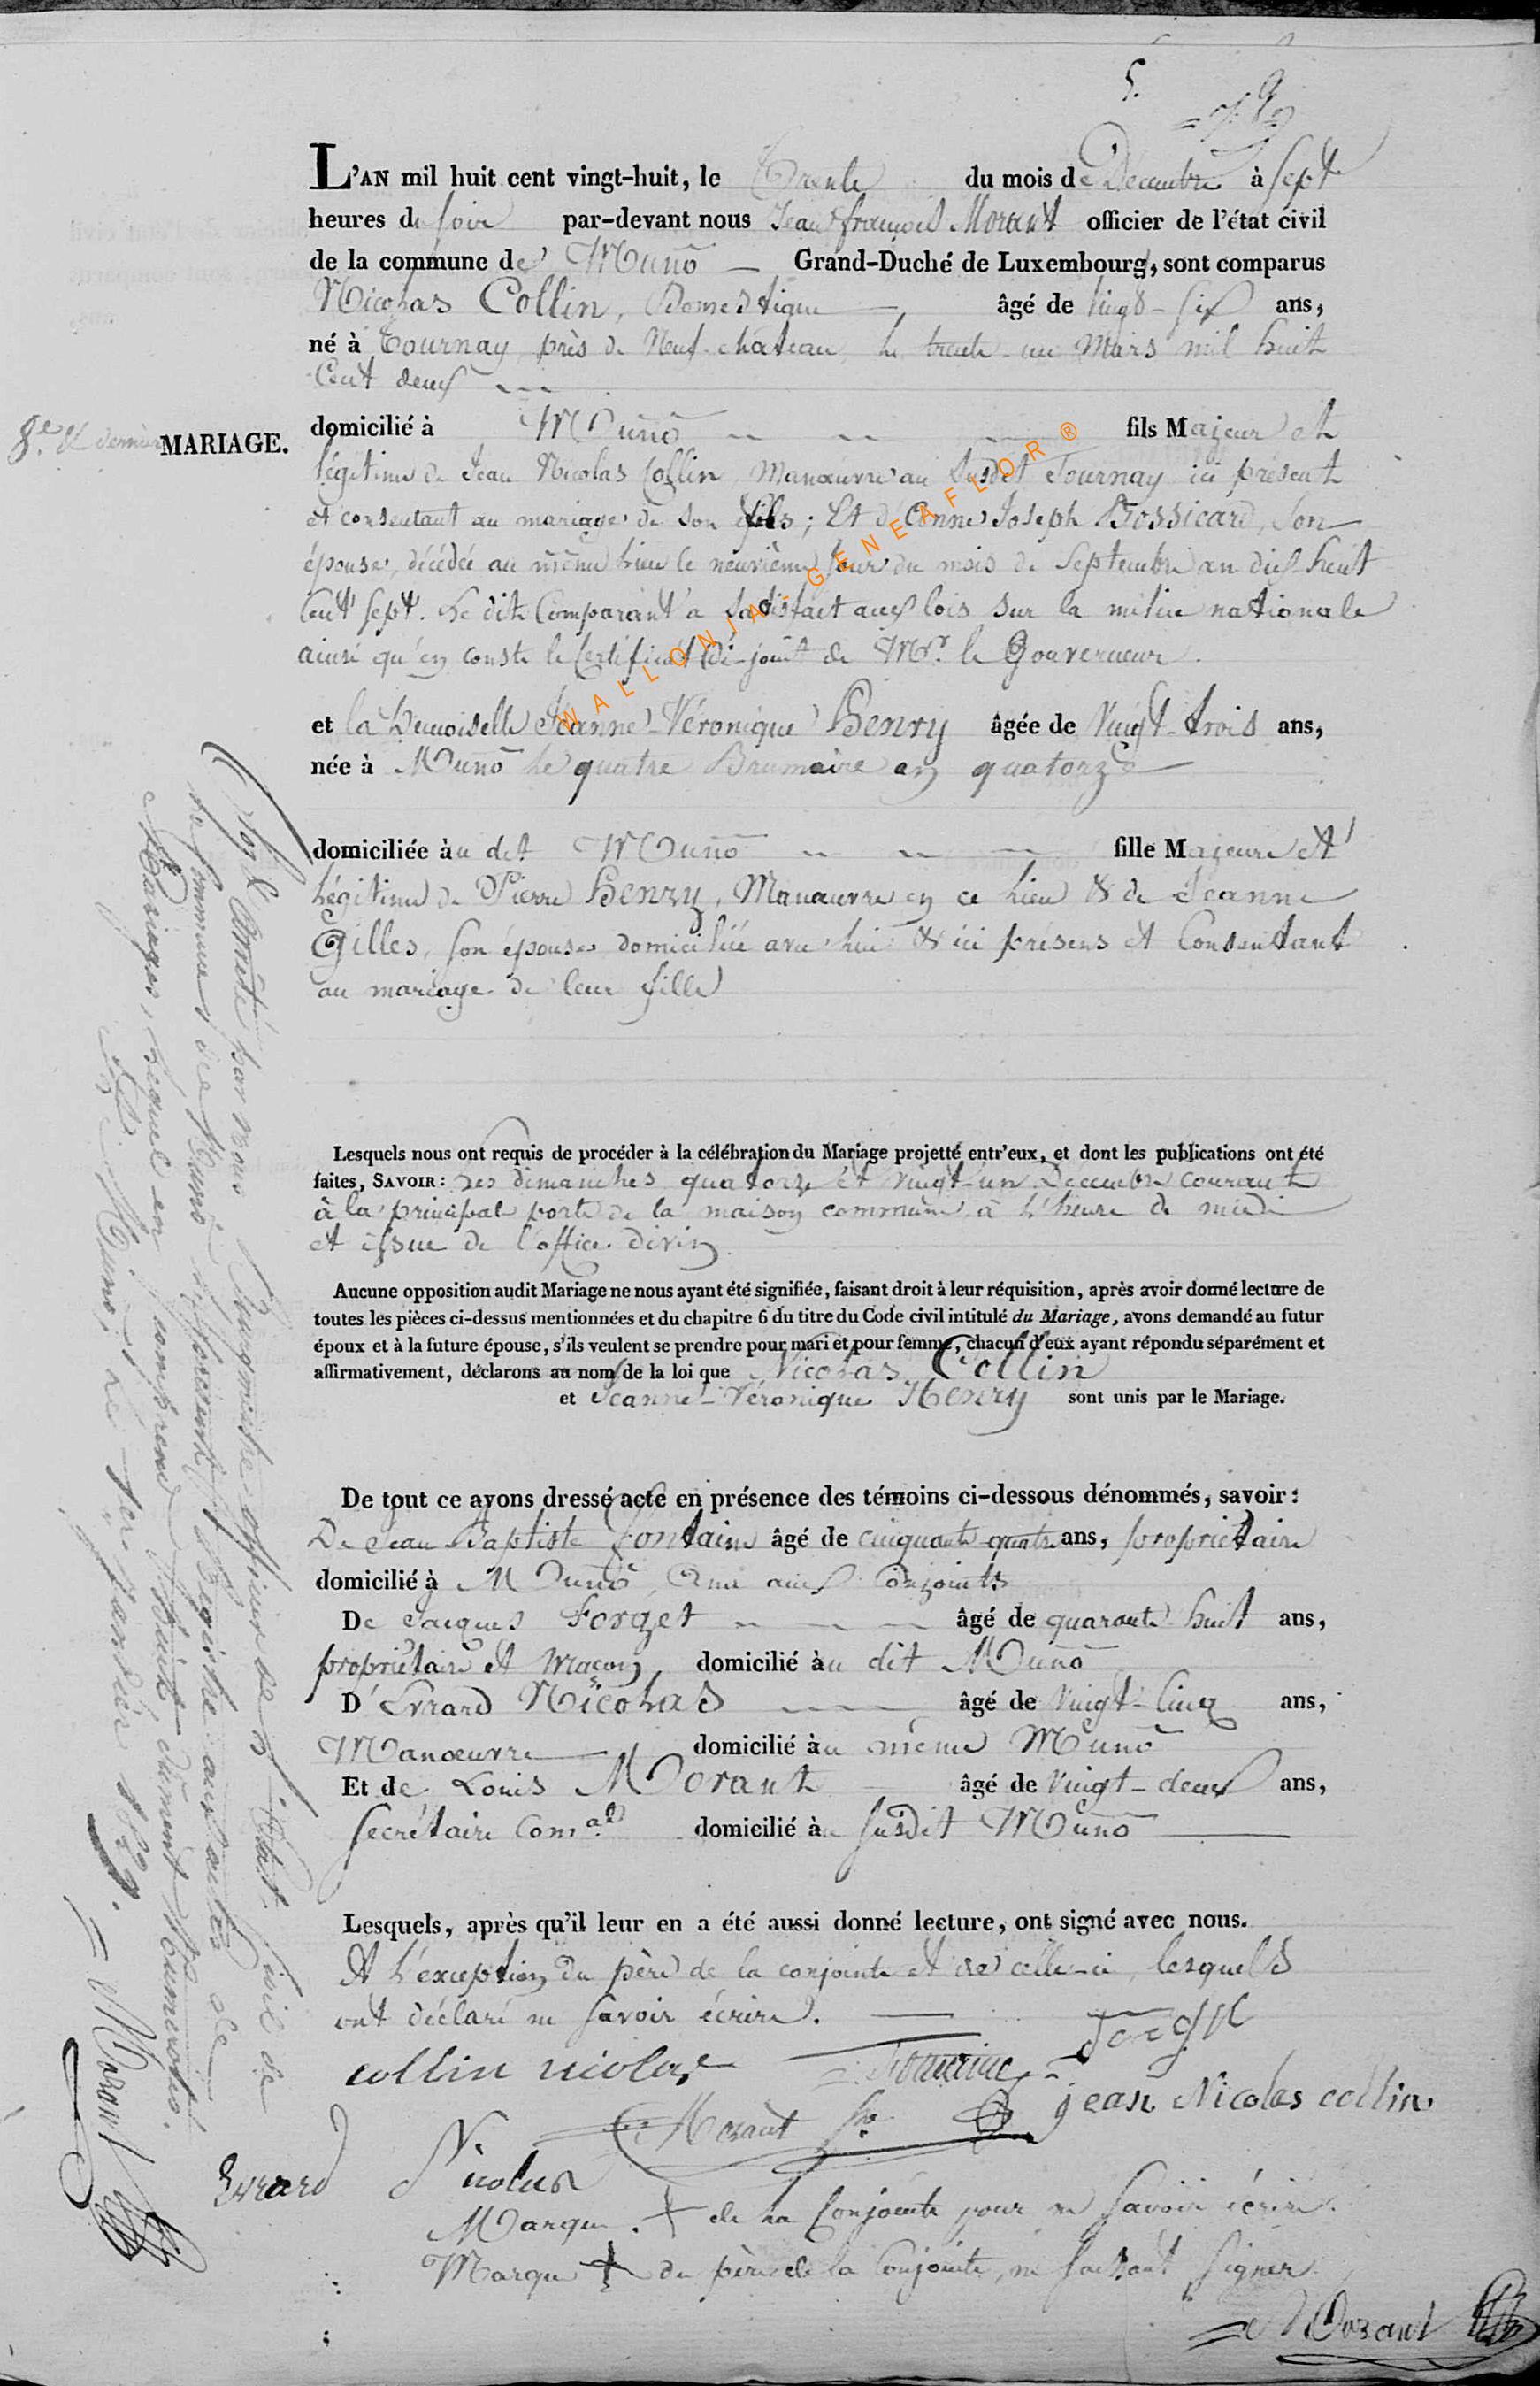 5.
L'AN mil huit cent vingt-huit, le Trente du mois de Décembre à Sept
heures du soir par-devant nous Jean françois Morant officier de l'état civil
de la commune de Muno Grand-Duché de Luxembourg, sont comparus
Nicolas Collin, Domestique âgé de vingt-six ans,
né à Tournay près de Neuf-château le trente-un Mars mil huit
Cent deux
8.e & dernier MARIAGE.
domicilié à Muno fils Majeur et
légitime de Jean Nicolas Collin Manœuvre au susdit Tournay ici présent
et consentant au mariage de son fils; Et d'Anne Joseph Bossicard, son
épouse, décédée au même lieu le neuvième jour du mois de Septembre an dix-huit
Cent sept. Le dit Comparant a satisfait aux lois sur la milice nationale
ainsi qu'en conste le Certificat ci-joint de Mr. le Gouverneur.
WALLONIA - GENEAFLOR ®
et la Demoiselle Jeanne-Véronique Henry âgée de Vingt-trois ans,
née à Muno le quatre Brumaire an quatorze
domiciliée àu dit Muno fille Majeure et
légitime de Pierre Henry, Manœuvre en ce lieu & de Jeanne
Gilles, son épouse domiciliée avec lui & ici présens et Consentant
au mariage de leur fille
Lesquels nous ont requis de procéder à la célébration du Mariage projetté entr'eux, et dont les publications ont été
faites, SAVOIR: Les dimanches quatorze et vingt-un Décembre courant
à la principal porte de la maison commune, à l'heure de midi
et issue de l'office divin
Aucune opposition audit Mariage ne nous ayant été signifiée, faisant droit à leur réquisition, après avoir donné lecture de
toutes les pièces ci-dessus mentionnées et du chapitre 6 du titre du Code civil intitulé du Mariage, avons demandé au futur
époux et à la future épouse, s'ils veulent se prendre pour mari et pour femme, chacun d'eux ayant répondu séparément et
affirmativement, déclarons au nom de la loi que Nicolas Collin
et Jeanne-Véronique Henry sont unis par le Mariage.
De tout ce avons dressé acte en présence des témoins ci-dessous dénommés, savoir:
De Jean Baptiste Fontaine âgé de cinquante-quatre ans, propriétaire
domicilié à Muno, Ami aux Conjoints
De Jacques Forget âgé de quarante huit ans,
propriétaire et Maçon, domicilié àu dit Muno
D'Evrard Nicolas âgé de vingt-cinq ans,
Manœuvre domicilié àu même Muno
Et de Louis Morant âgé de vingt-deux ans,
Secrétaire Com.al domicilié àu susdit Muno
Lesquels, après qu'il leur en a été aussi donné lecture, ont signé avec nous.
A l'exception du père de la conjointe et de celle-ci, lesquels
ont déclaré ne savoir écrire.
collin nicolas
Forget
jean Nicolas collin.
Morant
Evrard Nicolas
Marque + de la Conjointe pour ne savoir écrire.
Marque + du père de la Conjointe, ne sachant signer
Morant
Clos & Arrêté par nous Bourgmestre officier de l'état civil de
la Commune de Muno le présent Registre aux actes de
Mariages, lequel en contient huit dûment numérotés.
A Muno, le 1er janvier 1829.
Morant